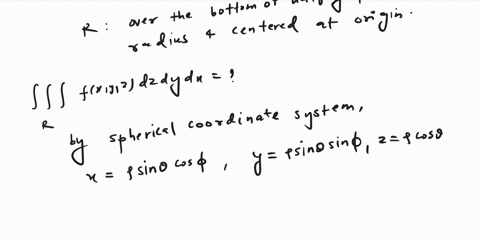 R : over the bottom of
radius 4 centered at origin.
∫∫∫ f(x,y,z) dz dy dx = ?
R
by spherical coordinate system,
x = ρ sinθ cosϕ , y = ρ sinθ sinϕ, z = ρ cosθ